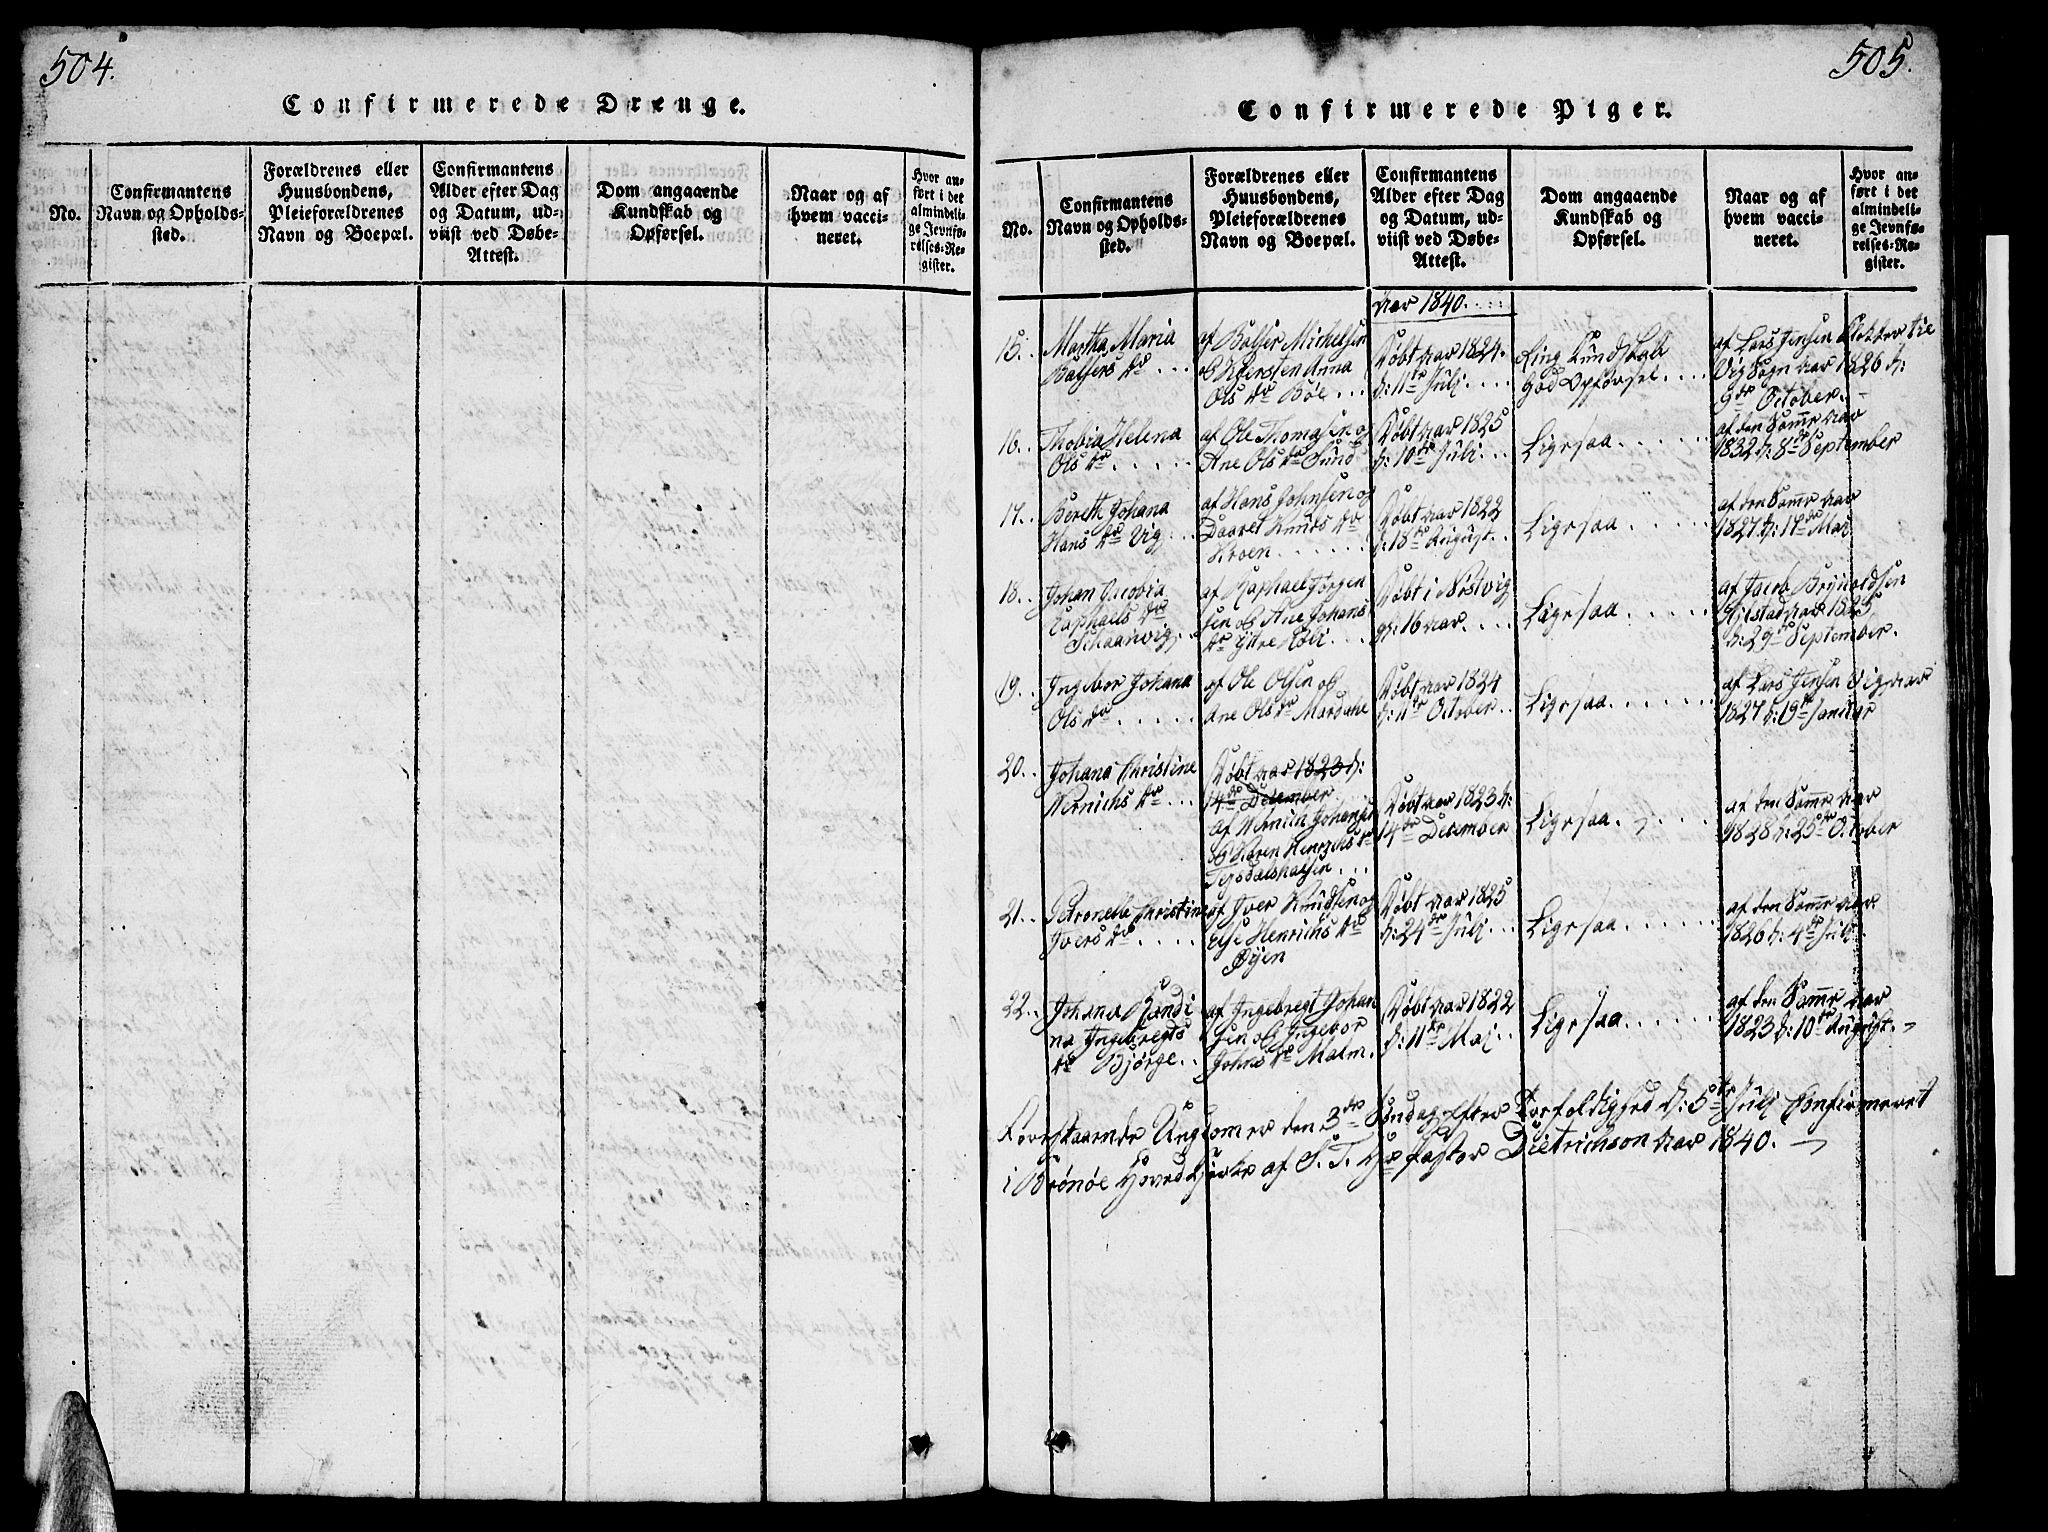 504.
Confirmerede Drenge.
No.
Confirmantens
Navn og Opholds-
sted.
Forældrenes eller
Huusbondens,
Pleieforældrenes
Navn og Boepæl.
Confirmantens
Alder efter Dag
og Datum, ud-
viist ved Døbe-
Attest.
Dom angaaende
Kundskab og
Opførsel.
Naar og af
hvem vacci-
neret.
Hvor an-
ført i det
almindeli-
ge Jevnfø-
relses-Re-
gister.
505.
Confirmerede Piger.
No.
Confirmantens
Navn og Opholds-
sted.
Forældrenes eller
Huusbondens,
Pleieforældrenes
Navn og Boepæl.
Confirmantens
Alder efter Dag
og Datum, ud-
viist ved Døbe-
Attest.
Dom angaaende
Kundskab og
Opførsel.
Naar og af
hvem vacci-
neret.
Hvor an-
ført i det
almindeli-
ge Jevnfø-
relses-Re-
gister.
Aar 1840.
15.
Martha Maria
Balsers dr
af Balser Michelsen
og Kjersten Anna
Ols dr Böe
Döbt aar 1824.
d: 11te Julj
Ring Kundskab
God Opförsel
af Lars Jensen
Vig Sogn aar 1826 d:
9de October.
16.
Thobia Helena
Ols dr
af Ole Thomasen og
Ane Ols dr Sund
Döbt aar 1825
d: 10de Julj
Ligesaa
af den Samme aar
1832 d: 8de September
17.
Bereth Johana
Hans dr Vig
af Hans Johnsen og
Daaret Knuds dr
Kroen
Döbt aar 1822
d: 18de August
Ligesaa
af den Samme aar
1827 d: 17de Mai
18.
Johan Jacobia
Raphaels dr
Schaarvig
af Raphael Jörgen
sen og Ane Johans
dr Ytre
Döbt i
gl: 16 aar
Ligesaa
af Jacob Brynildsen
aar 1825
d: 29de September.
19.
Ingebor Johana
Ols dr
af Ole Olsen og
Ane Ols dr Mardahl
Döbt aar 1824
d: 11te October
Ligesaa
af Lars Jensen Vig aar
1827 d: 19de Januar
20.
Johana Christine
Wernichs dr
Döbt aar 1823 d:
14de December
af Wernich Johansen
og Karen Henrichs dr
Döbt aar 1823 d:
14de December
Ligesaa
af den Samme aar
1828 d: 25de October
21.
Petronelle Christine
Ivers dr
af Iver Knudsen og
Else Henrichs dr
Öyen
Döbt aar 1825
d: 24de Julj
Ligesaa
af den Samme aar
1826 d: 4de Julj
22.
Johana Randi
na Ingebregts
dr Björge
af Ingebregt Johan
sen og Ingebor
Johns dr Malm.
Döbt aar 1822
d: 11te Maj
Ligesaa
af den Samme aar
1823 d: 10de August.
Forestaaende Ungdomer den 3de Söndag efter Trefoldighed d: 5te Julj Confirmeret
i Brönöe Hovedkjerke af S. T. Hr Pastor Dietrichson aar 1840.